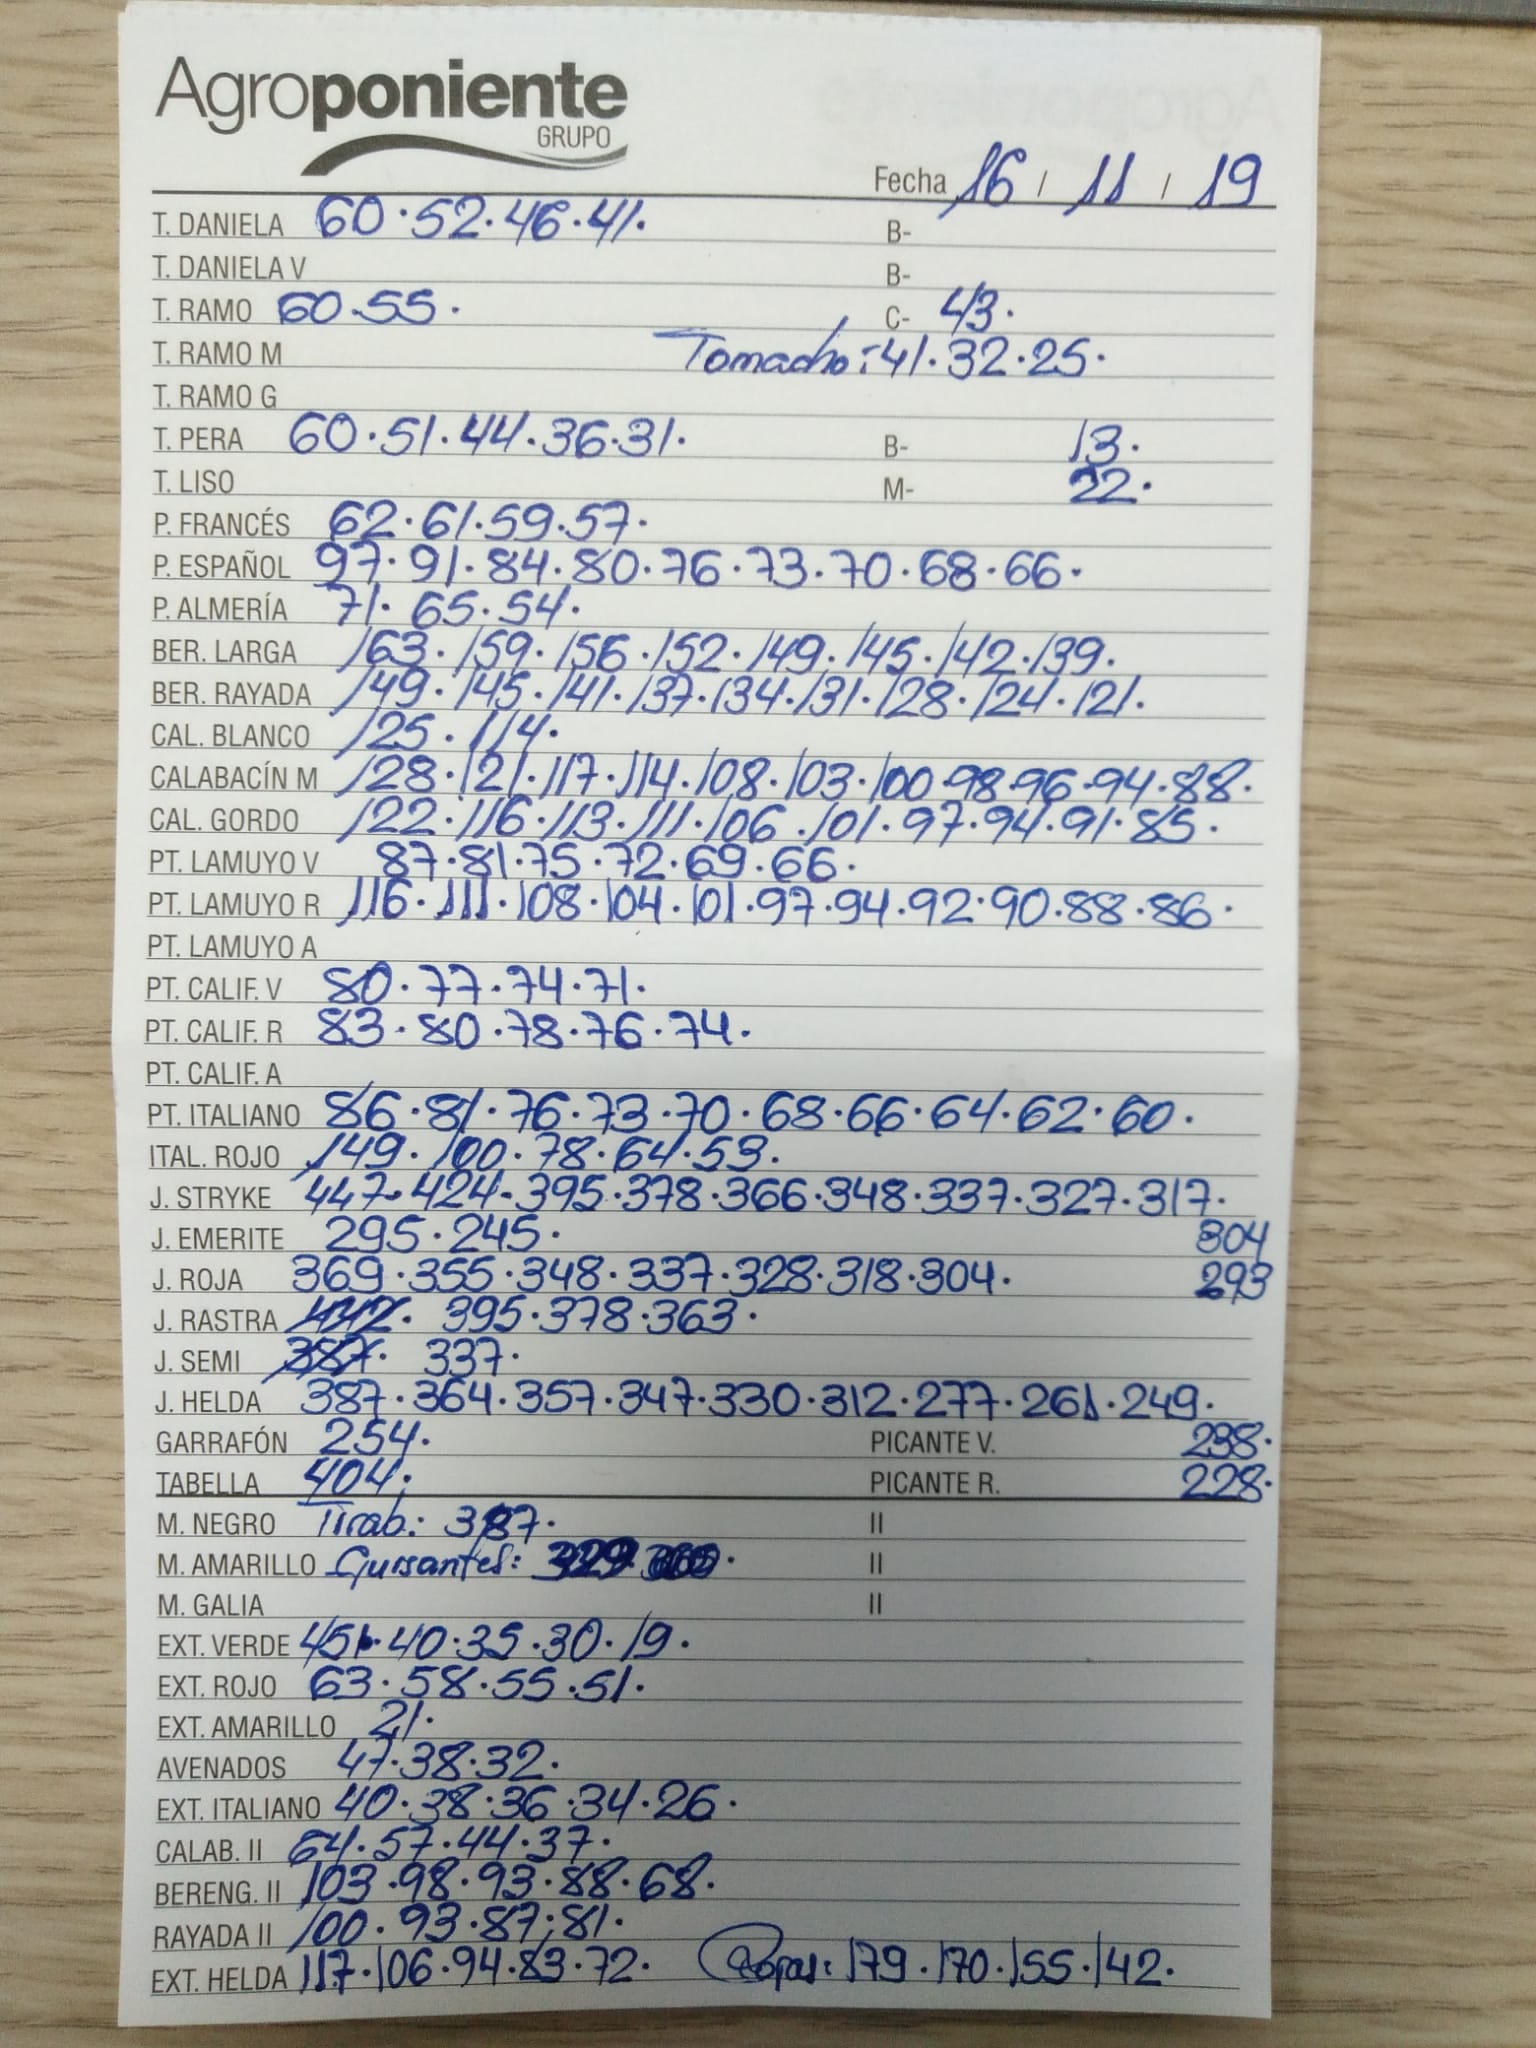 Agroponiente
GRUPO
Fecha 16 / 11 / 19
T. DANIELA 60·52·46·41· B-
T. DANIELA V B-
T. RAMO 60·55· C- 43·
T. RAMO M Tomacho: 41·32·25·
T. RAMO G
T. PERA 60·51·44·36·31· B- 13·
T. LISO M- 22·
P. FRANCÉS 62·61·59·57·
P. ESPAÑOL 97·91·84·80·76·73·70·68·66·
P. ALMERÍA 71·65·54·
BER. LARGA 163·159·156·152·149·145·142·139·
BER. RAYADA 149·145·141·137·134·131·128·124·121·
CAL. BLANCO 125·114·
CALABACÍN M 128·121·117·114·108·103·100·98·96·94·88·
CAL. GORDO 122·116·113·111·106·101·97·94·91·85·
PT. LAMUYO V 87·81·75·72·69·66·
PT. LAMUYO R 116·111·108·104·101·97·94·92·90·88·86·
PT. LAMUYO A
PT. CALIF. V 80·77·74·71·
PT. CALIF. R 83·80·78·76·74·
PT. CALIF. A
PT. ITALIANO 86·81·76·73·70·68·66·64·62·60·
ITAL. ROJO 149·100·78·64·53·
J. STRYKE 447·424·395·378·366·348·337·327·317·
J. EMERITE 295·245· 304
J. ROJA 369·355·348·337·328·318·304· 293
J. RASTRA 395·378·363·
J. SEMI 387· 337·
J. HELDA 387·364·357·347·330·312·277·261·249·
GARRAFÓN 254· PICANTE V. 238·
TABELLA 404· PICANTE R. 228·
M. NEGRO Tirab.: 387· II
M. AMARILLO Guisantes: II
M. GALIA II
EXT. VERDE 451·40·35·30·19·
EXT. ROJO 63·58·55·51·
EXT. AMARILLO 21·
AVENADOS 47·38·32·
EXT. ITALIANO 40·38·36·34·26·
CALAB. II 64·57·44·37·
BERENG. II 103·98·93·88·68·
RAYADA II 100·93·87·81·
EXT. HELDA 117·106·94·83·72· Rojas: 179·170·155·142·